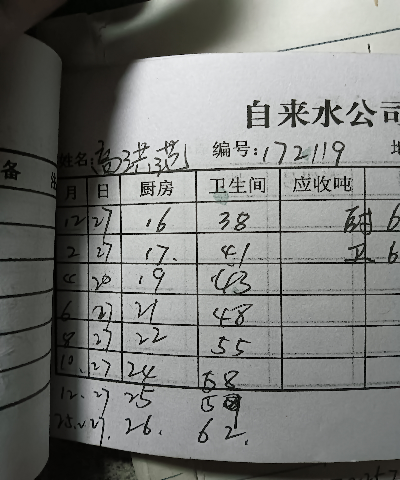 自来水公司
备
姓名: 高洪 编号: 172119
月 日 厨房 卫生间 应收吨
12 27 16 38 厨 6
2 27 17. 41 卫 6
4 20 19 43
6 27 21 48
8 27 22 55
10. 27 24 58
12. 27 25 59
27. 26. 62.